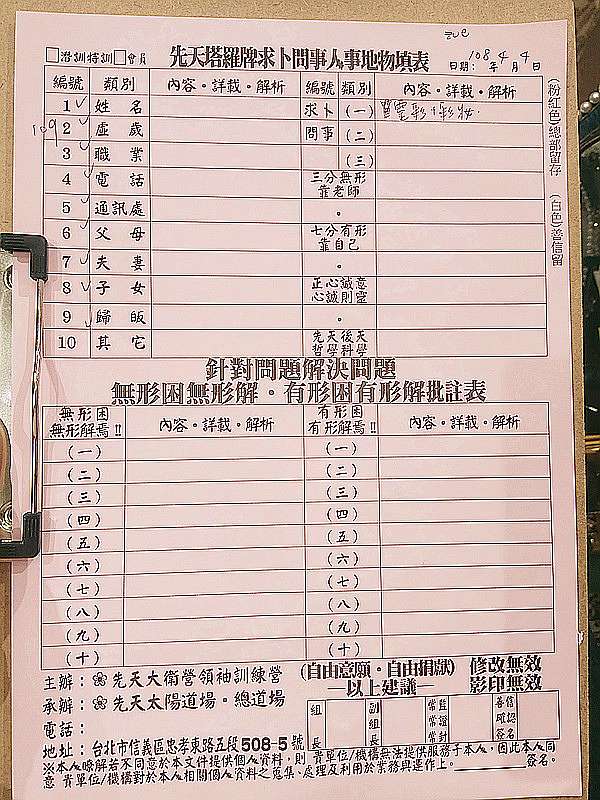 □潛訓特訓□會員 先天塔羅牌求卜問事人事地物填表 日期：108年4月4日
編號 類別 內容·詳載·解析 編號 類別 內容·詳載·解析
1 姓名 求卜 (一)
2 虛歲 問事 (二)
109
3 職業 (三)
4 電話 三分無形靠老師
5 通訊處 。
6 父母 七分有形靠自己
7 夫妻 。
8 子女 正心誠意心誠則靈
9 歸皈 。
10 其它 先天後天哲學科學
(粉紅色)總部留存 (白色)善信留
針對問題解決問題
無形困無形解·有形困有形解批註表
無形困無形解焉!! 內容·詳載·解析 有形困有形解焉!! 內容·詳載·解析
(一) (一)
(二) (二)
(三) (三)
(四) (四)
(五) (五)
(六) (六)
(七) (七)
(八) (八)
(九) (九)
(十) (十)
主辦：先天大衛營領袖訓練營 (自由意願·自由捐獻) 修改無效
承辦：先天太陽道場·總道場 —以上建議— 影印無效
電話： 組長 副組長 常監常證封 善信確認簽名
地址：台北市信義區忠孝東路五段508-5號
※本人瞭解若不同意於本文件提供個人資料，則貴單位/機構無法提供服務于本人，因此本人同
意 貴單位/機構對於本人相關個人資料之蒐集、處理及利用於業務與運作上。 簽名。